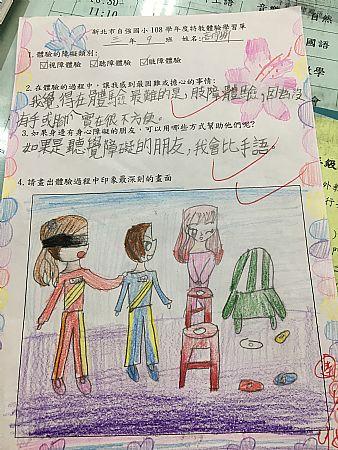 新北市自強國小 108 學年度特教體驗學習單
三年 9 班 姓名:
1. 體驗的障礙類別:
☑視障體驗 ☑聽障體驗 ☑肢障體驗
2. 在體驗的過程中,讓我感到最困難或擔心的事情:
我覺得在體驗最難的是,肢障體驗,因為沒
有手或腳,實在很不方便。
3. 如果身邊有身心障礙的朋友,可以用哪些方式幫助他們呢?
如果是聽覺障礙的朋友,我會比手語。
4. 請畫出體驗過程中印象最深刻的畫面
自然
國語
數學